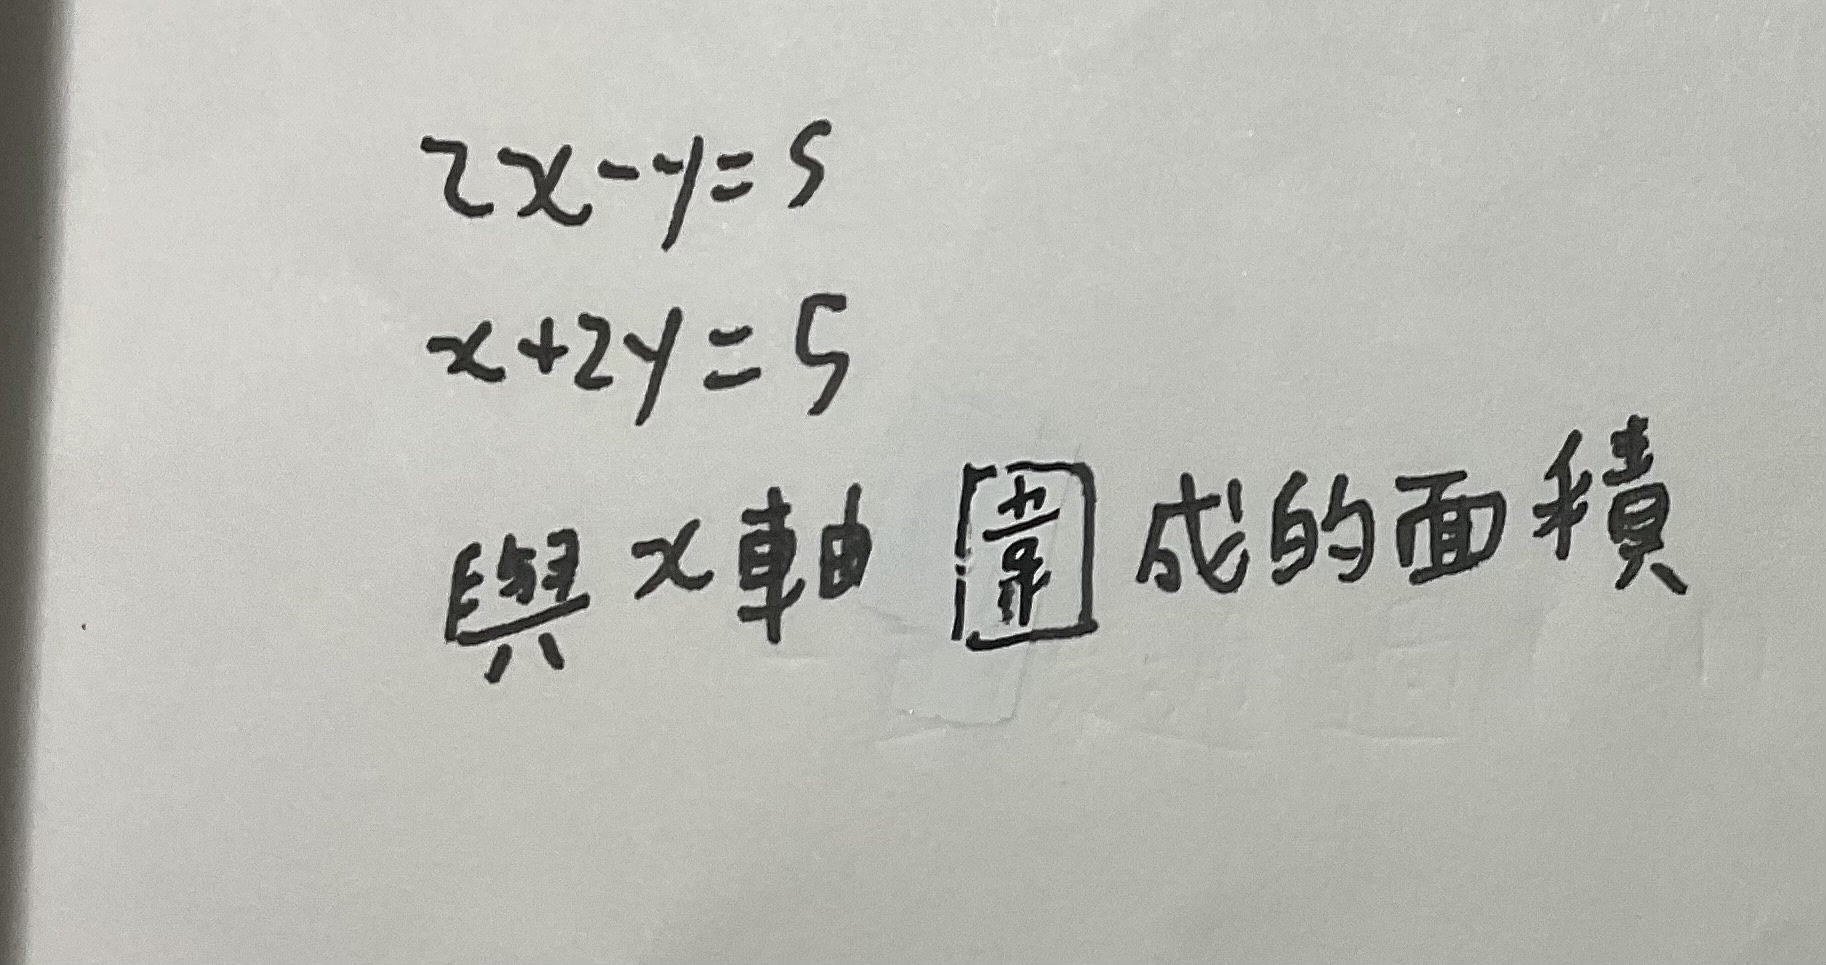 2x-y=5
x+2y=5
與x軸圍成的面積